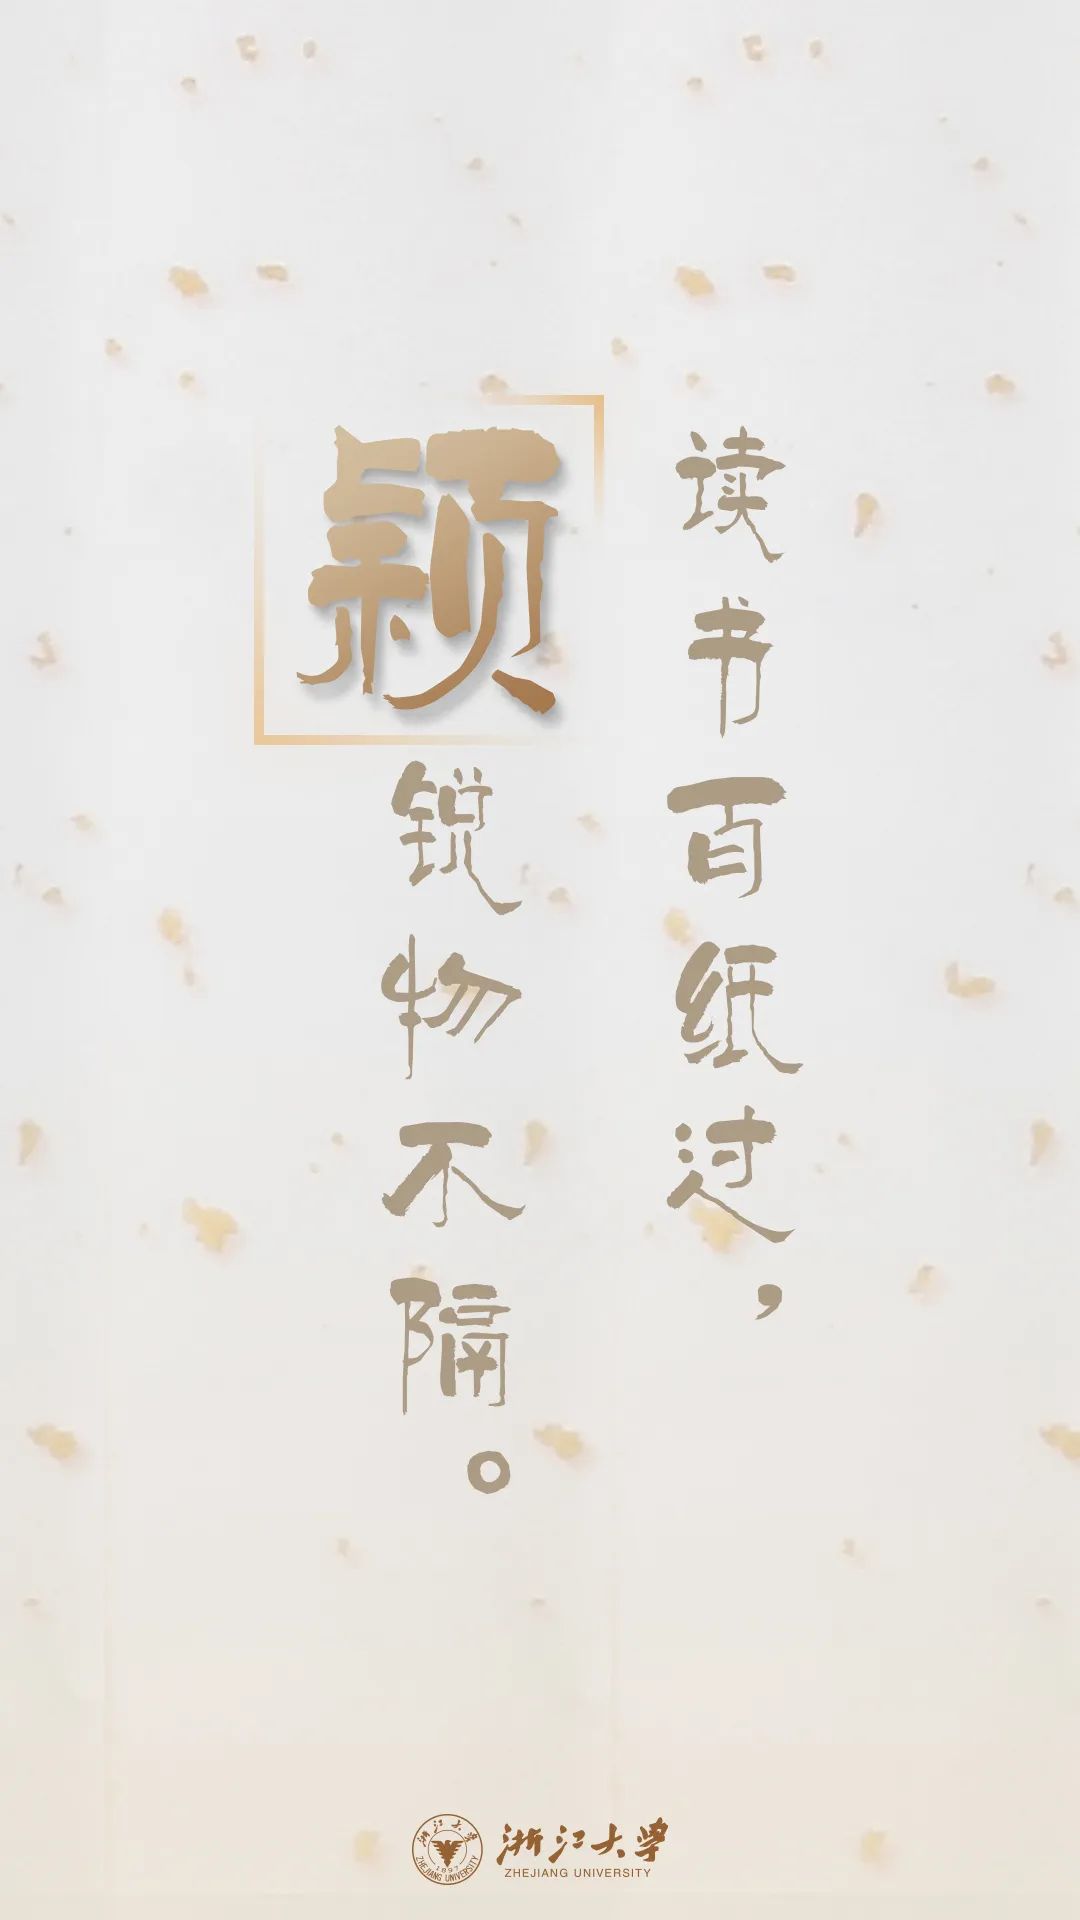 读书百纸过，
颖锐物不隔。
浙江大学
1897
ZHEJIANG UNIVERSITY
浙江大学
ZHEJIANG UNIVERSITY